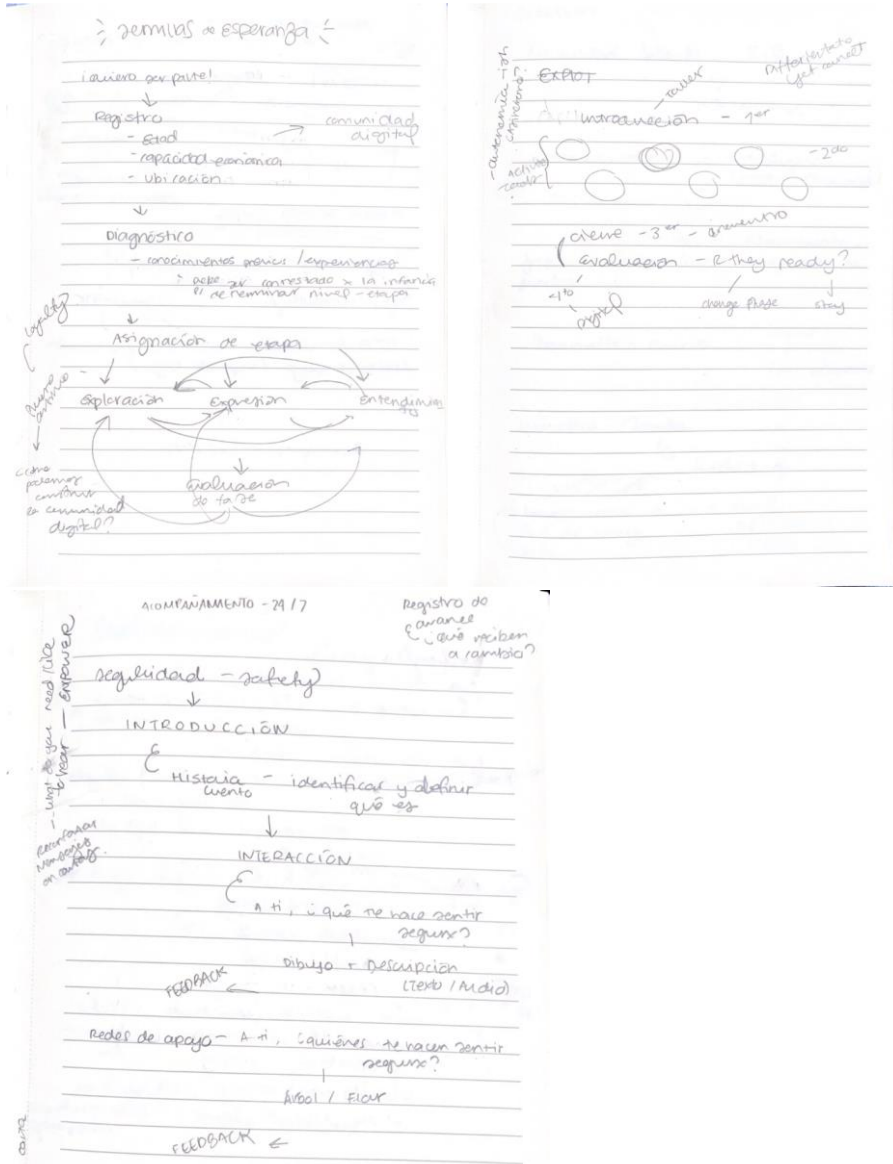 Semillas de Esperanza
¡quiero ser parte!
Registro
- Edad
- capacidad económica
- ubicación
comunidad
digital
Diagnóstico
- conocimientos previos / experiencias
debe ser contestado x la infancia
determinar nivel - etapa
Loyalty?
Asignación de etapa
Exploración
Expresión
Entendimiento
¿cómo
podemos
construir
la comunidad
digital?
Evaluación
de fase
Differentiate
yet connect
- taller
Introducción - 1er
- 2do
cierre - 3er - encuentro
Evaluación - R they ready?
4to
Digital
change phase
stay
ACOMPAÑAMIENTO - 24/7
Registro de
avance
¿qué reciben
a cambio?
- what do you need / like
to hear - EMPOWER
seguridad - safety
INTRODUCCIÓN
Historia - identificar y definir
cuento
qué es
INTERACCIÓN
A ti, ¿qué te hace sentir
segurx?
Dibujo + Descripción
(Texto / Audio)
FEEDBACK
Redes de apoyo - A ti, ¿quiénes te hacen sentir
segurx?
Árbol / Flor
FEEDBACK